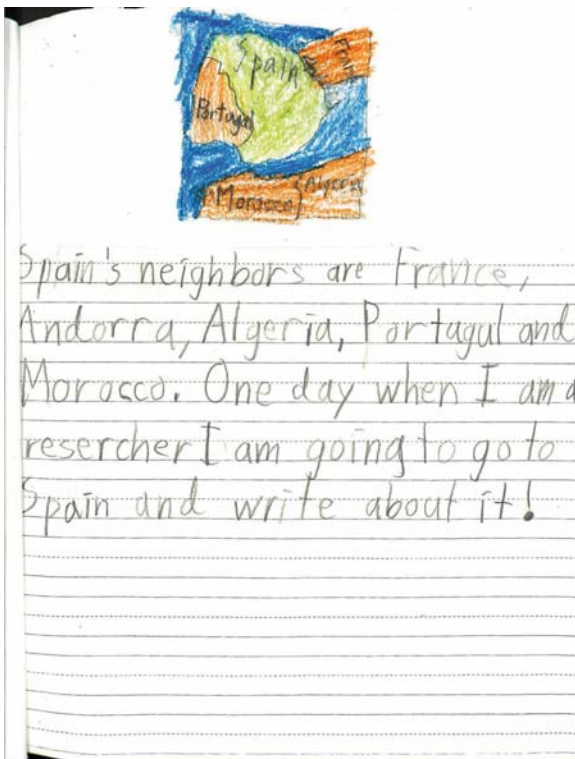 Spain
France
Portugal
Morocco
Algeria
Spain's neighbors are France,
Andorra, Algeria, Portagul and
Morocco. One day when I am a
resercher I am going to go to
Spain and write about it!